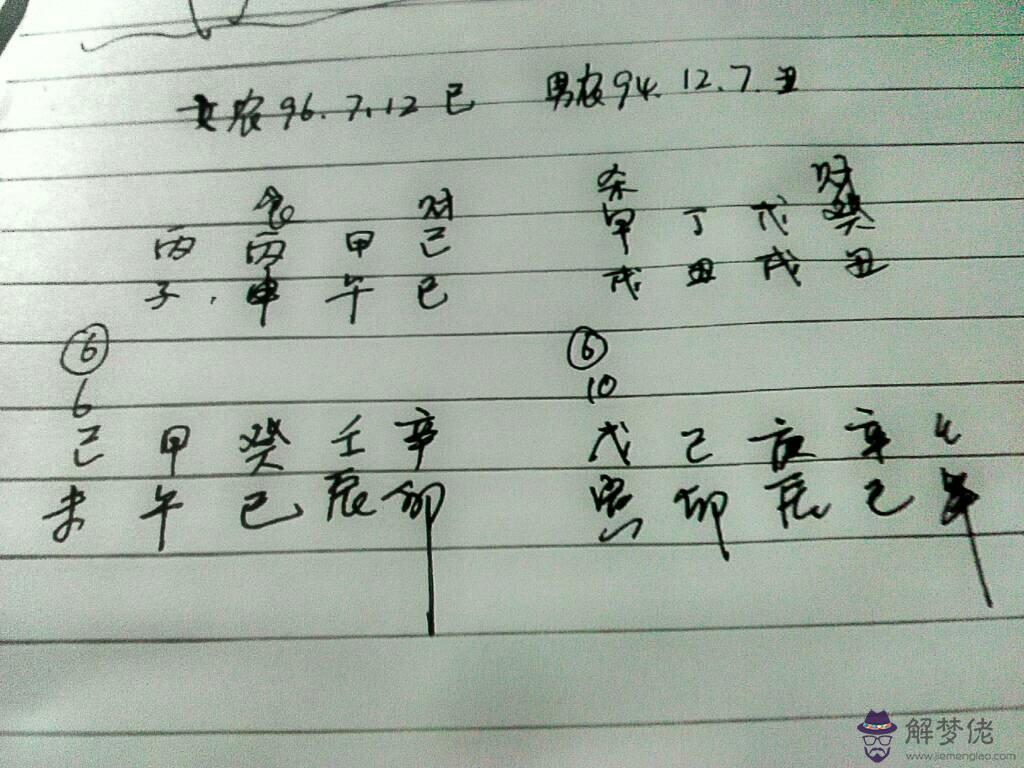 女农96.7.12巳 男农94.12.7.丑
食 财 杀 财
丙 丙 甲 己 甲 丁 戊 癸
子, 申 午 巳 戌 丑 戌 丑
⑥ ⑥
6 10
己 甲 癸 壬 辛 戊 己 辛
未 午 巳 辰 卯 寅 卯 辰 巳
解梦佬
www.jiemenglao.com